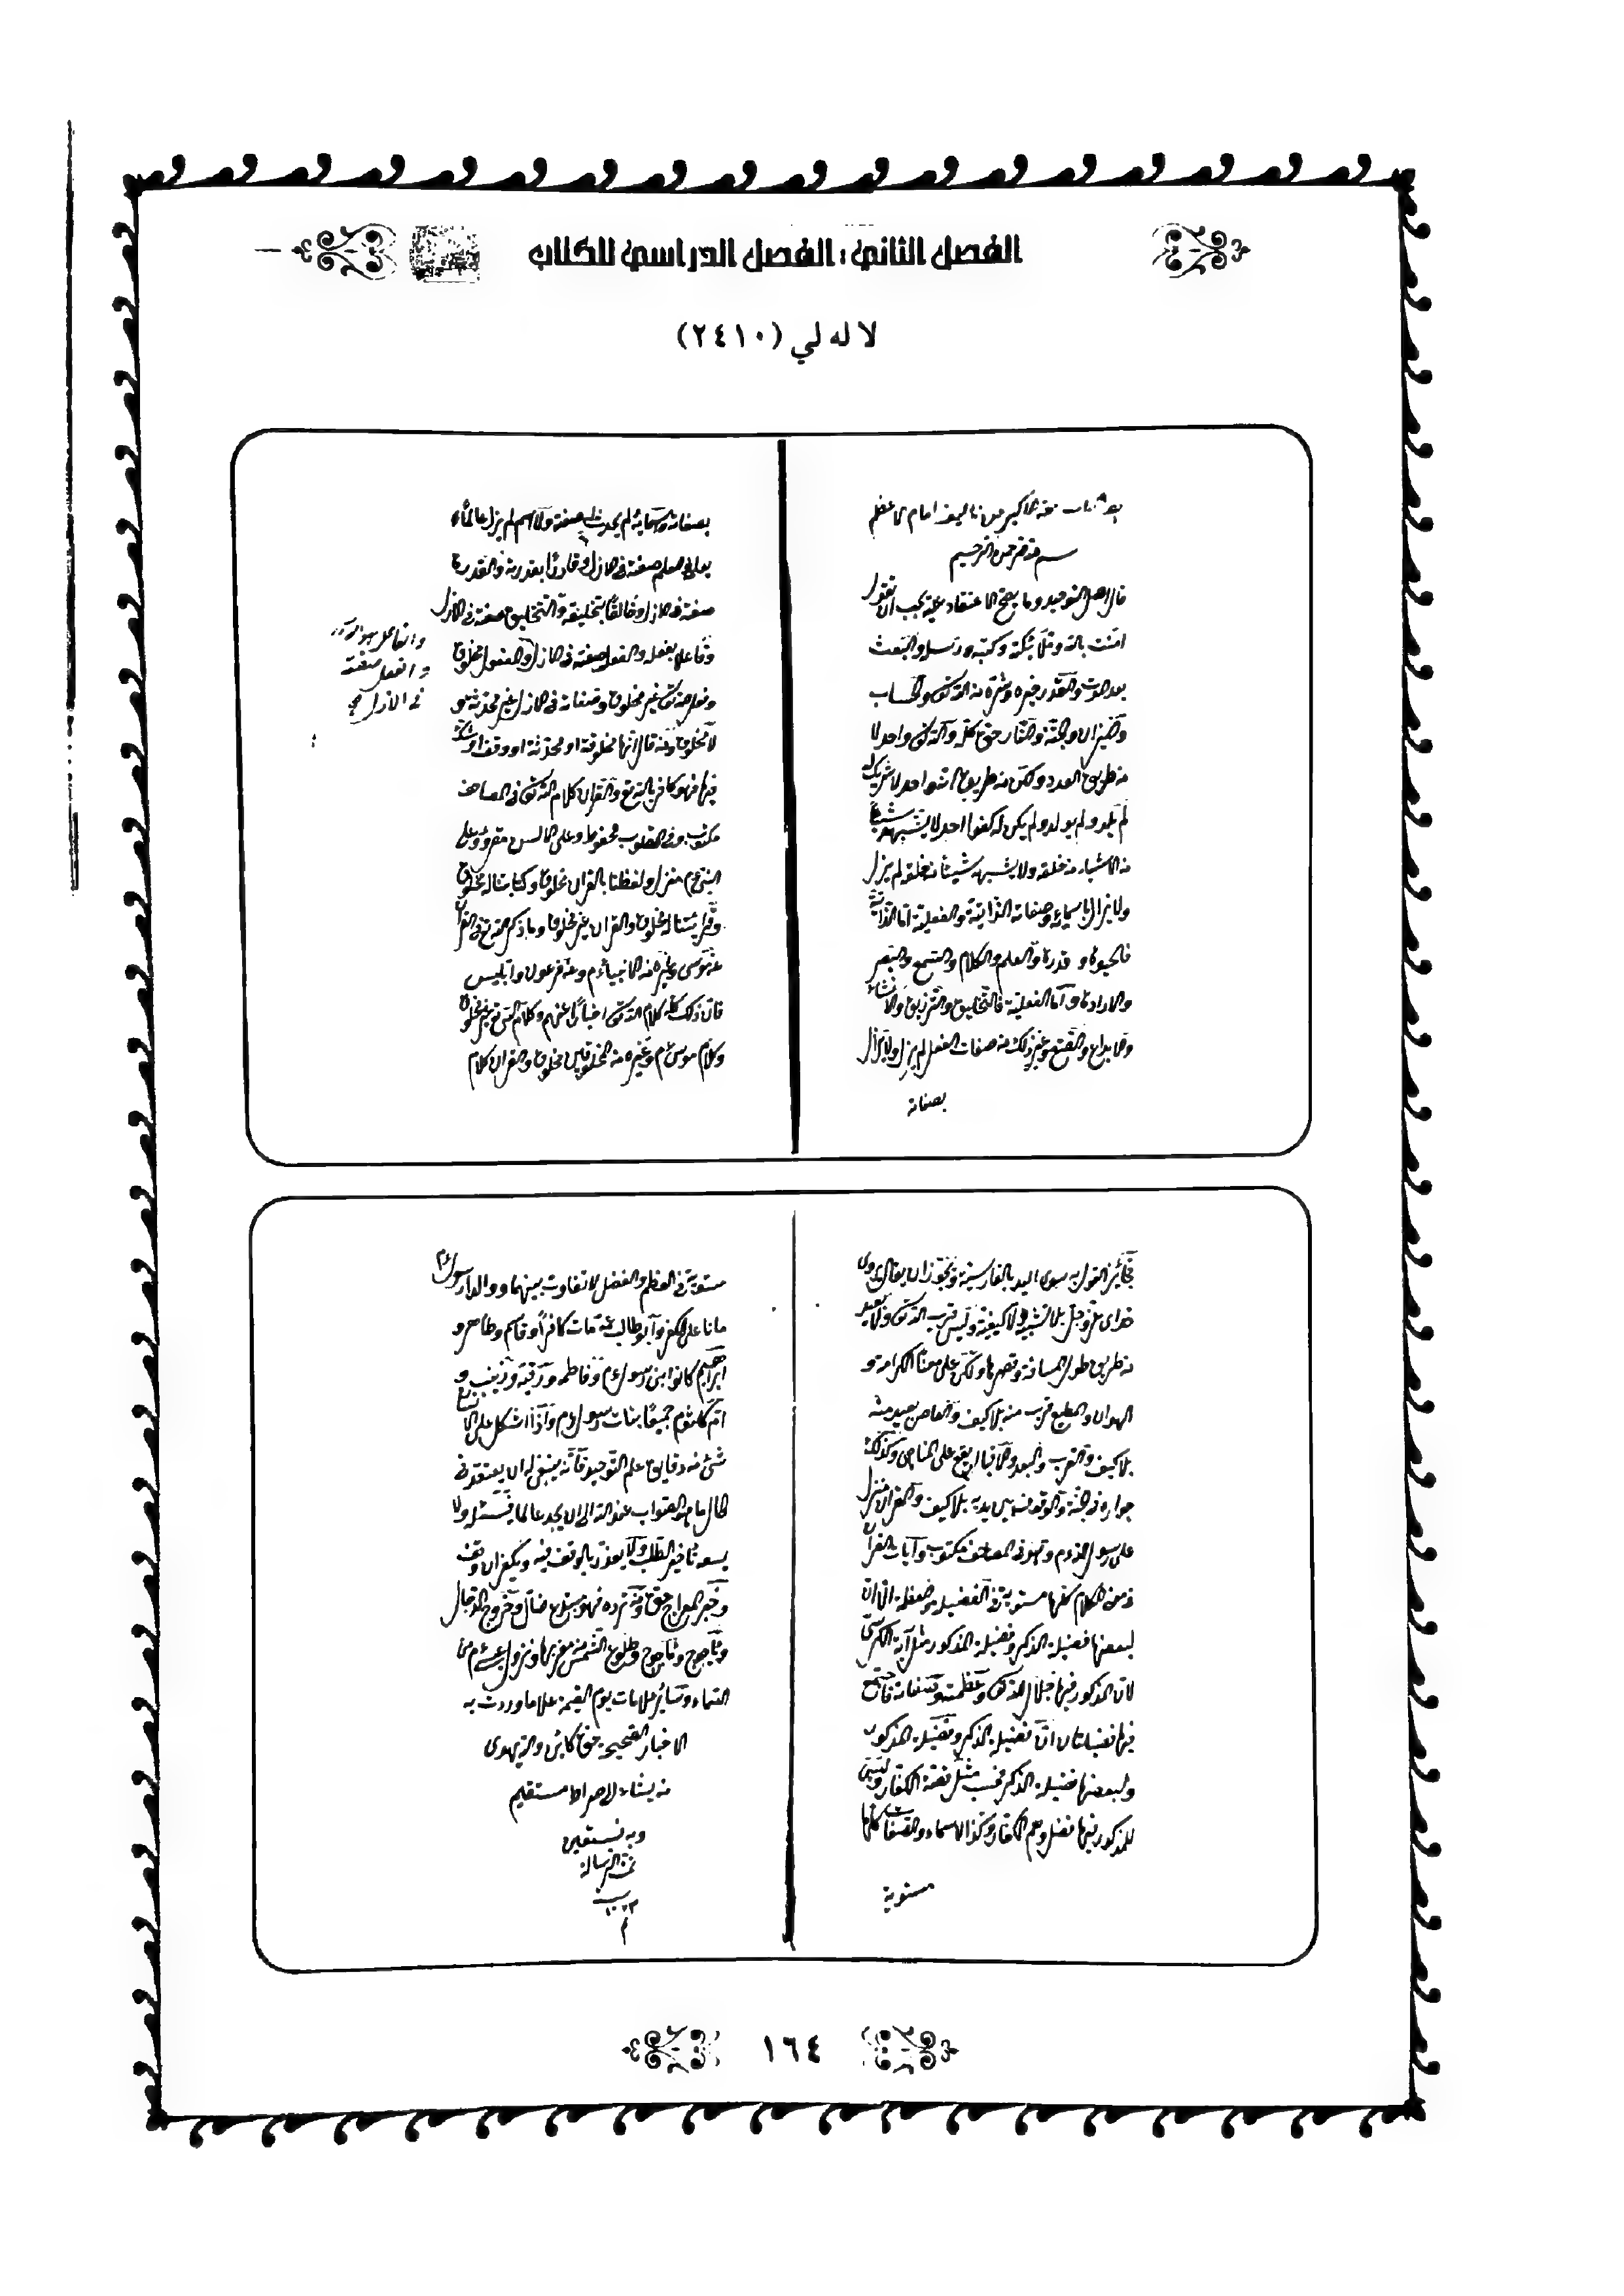 الفصل الثاني: الفصل الدراسي للكتاب
لا له لي (٢٤١٠)
فقه الاكبر من تاليف امام الاعظم
بسم الله الرحمن الرحيم
قال اصل التوحيد وما يصح الاعتقاد عليه يجب ان يقول
امنت بالله وملائكته وكتبه ورسله والبعث
بعد الموت والقدر خيره وشره من الله تعالى والحساب
والميزان والجنة والنار حق كله والله تعالى واحد لا
من طريق العدد ولكن من طريق انه واحد لا شريك له
لم يلد ولم يولد ولم يكن له كفوا احد لا يشبه شيئا
من الاشياء من خلقه ولا يشبهه شيئا من خلقه لم يزل
ولا يزال باسمائه وصفاته الذاتية والفعلية اما الذاتية
فالحيوة و قدرة والعلم والكلام والسمع والبصر
والارادة و اما الفعلية فالتخليق والترزيق والانشاء
والابداع والصنع وغير ذلك من صفات الفعل لم يزل ولا يزال
بصفاته
بصفاته واسمائه لم يحدث له صفة ولا اسم لم يزل عالما
بعلمه والعلم صفة في الازل وقادرا بقدرته والقدرة
صفة في الازل وخالقا بتخليقه والتخليق صفة في الازل
وفاعلا بفعله والفعل صفة في الازل والمفعول مخلوق
وفعل الله تعالى غير مخلوق وصفاته في الازل غير محدثة و
لا مخلوقة ومن قال انها مخلوقة او محدثة او وقف او شك
فيها فهو كافر بالله تع والقران كلام الله تعالى في المصاحف
مكتوب وفي القلوب محفوظ وعلى الالسن مقروء وعلى
النبي عم منزل ولفظنا بالقران مخلوق وكتابتنا له مخلوق
وقراءتنا له مخلوق والقران غير مخلوق وما ذكر الله تع في القران
عن موسى وغيره من الانبياء عم وعن فرعون وابليس
فان ذلك كله كلام الله تعالى اخبارا عنهم وكلام الله تع غير مخلوق
وكلام موسى عم وغيره من المخلوقين مخلوق والقران كلام
والفاعل هو الله
والفعل صفته
في الازل صح
فجائز القول به سوى اليد بالفارسية ويجوز ان يقال بروى
خداى عز وجل بلا تشبيه ولا كيفية وليس قرب الله تعالى ولا بعده
من طريق طول المسافة وقصرها ولكن على معنى الكرامة و
الهوان والمطيع قريب منه بلا كيف والعاصى بعيد منه
بلا كيف والقرب والبعد والاقبال يقع على المناجي وكذلك
جواره في الجنة والوقوف بين يديه بلا كيف والقران منزل
على رسول الله عم وهو في المصاحف مكتوب وآيات القرآن
في معنى الكلام كلها مستوية في الفضيلة والعظمة الا ان
لبعضها فضيلة الذكر وفضيلة المذكور مثل آية الكرسي
لان المذكور فيها جلال الله تعالى وعظمته وصفاته فاجتمع
فيها فضيلتان فضيلة الذكر وفضيلة المذكور
ولبعضها فضيلة الذكر فحسب مثل قصة الكفار وليس
للمذكور فيها فضل وهم الكفار وكذا الاسماء والصفات كلها
مستوية
مستوية في العظم والفضل لا تفاوت بينهما ووالدا رسول الله عم
ماتا على الكفر وابو طالب عمه مات كافرا وقاسم وطاهر و
ابراهيم كانوا بنى رسول عم وفاطمة ورقية وزينب و
ام كلثوم جميعا بنات رسول عم واذا اشكل على الانسان
شئ من دقايق علم التوحيد فانه ينبغى له ان يعتقد في
الحال ما هو الصواب عند الله الى ان يجد عالما فيسئله ولا
يسعه تاخير الطلب ولا يعذر بالوقف فيه ويكفر ان وقف
وخبر المعراج حق ومن رده فهو مبتدع ضال وخروج الدجال
وياجوج وماجوج وطلوع الشمس من مغربها ونزول عيسى عم من
السماء وسائر علامات يوم القيمة على ما وردت به
الاخبار الصحيحة حق كائن والله يهدى
من يشاء الى صراط مستقيم
وبه نستعين
تمت الرسالة
م
١٦٤